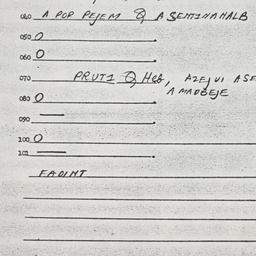 040 A POP PEJEM & A SEMTINAHALB
050 O
060 O
070 PRUTI & HEB, AZEJUI ASE
A MADBEJE
080 O
090
100 O
101
FADINT